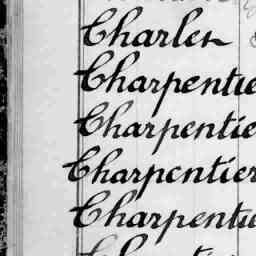 Charlen
Charpentie
Charpentie
Charpentier
Charpentie